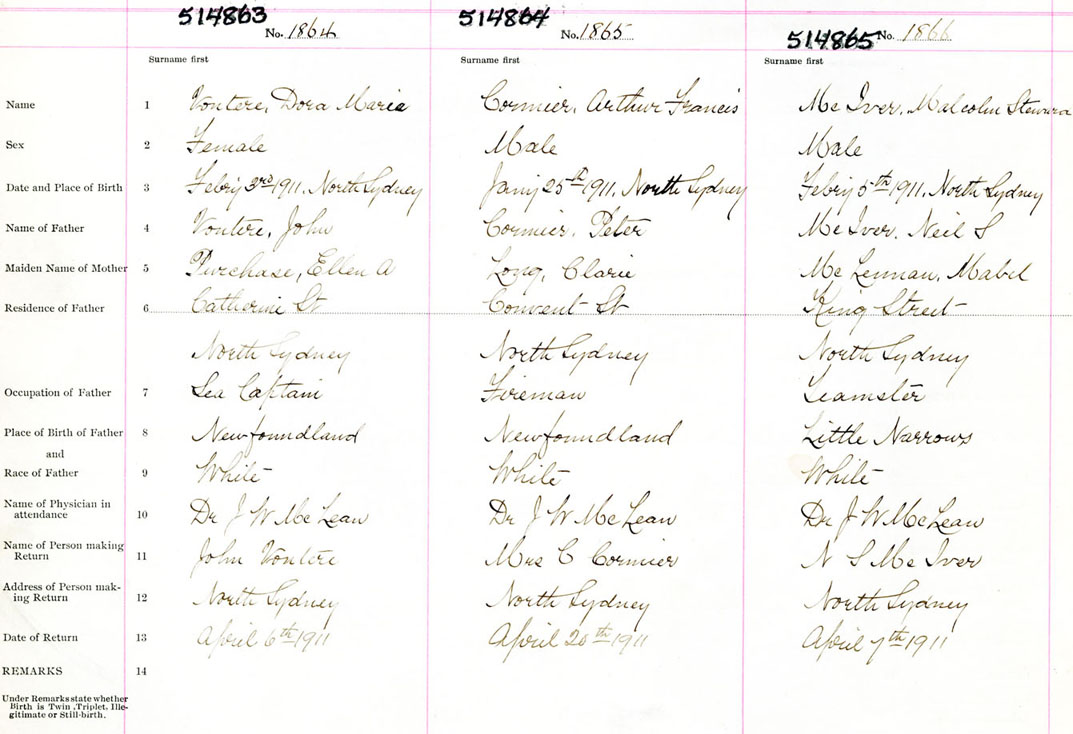 514863 514864 514865
No. 1864 No. 1865 No. 1866
Surname first Surname first Surname first
Name 1 Vontere, Dora Maria Cormier, Arthur Francis Mc Iver, Malcolm
Sex 2 Female Male Male
Date and Place of Birth 3 Febry 3rd 1911, North Sydney Jany 25th 1911, North Sydney Febry 5th 1911, North Sydney
Name of Father 4 Vontere, John Cormier, Peter Mc Iver, Neil S
Maiden Name of Mother 5 Purchase, Ellen A Long, Clarie Mc Lennan, Mabel
Residence of Father 6 Catherine St Convent St King Street
North Sydney North Sydney North Sydney
Occupation of Father 7 Sea Captain Fireman Teamster
Place of Birth of Father 8 Newfoundland Newfoundland Little Narrows
and
Race of Father 9 White White White
Name of Physician in
attendance 10 Dr J W McLean Dr J W McLean Dr J W McLean
Name of Person making
Return 11 John Vontere Mrs C Cormier N S Mc Iver
Address of Person mak-
ing Return 12 North Sydney North Sydney North Sydney
Date of Return 13 April 6th 1911 April 20th 1911 April 7th 1911
REMARKS 14
Under Remarks state whether
Birth is Twin, Triplet, Ille-
gitimate or Still-birth.